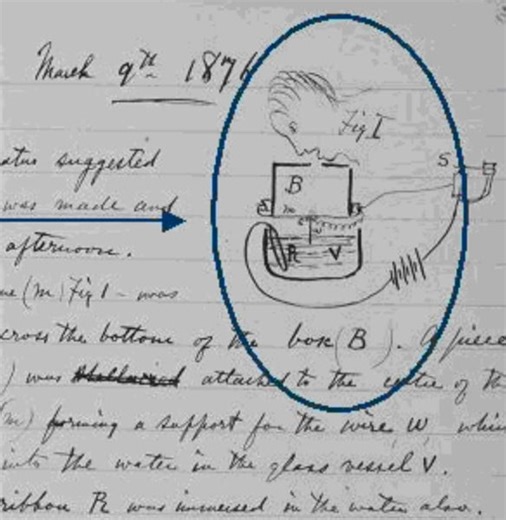 March 9th 1876
Fig 1
S
B
m
W
R V
atus suggested
was made and
afternoon.
ne (m) Fig 1 - was
cross the bottom of the box (B). A piece
) was attached to the centre of th
(m) forming a support for the wire, W, whic
into the water in the glass vessel V.
ribbon R was immersed in the water also.